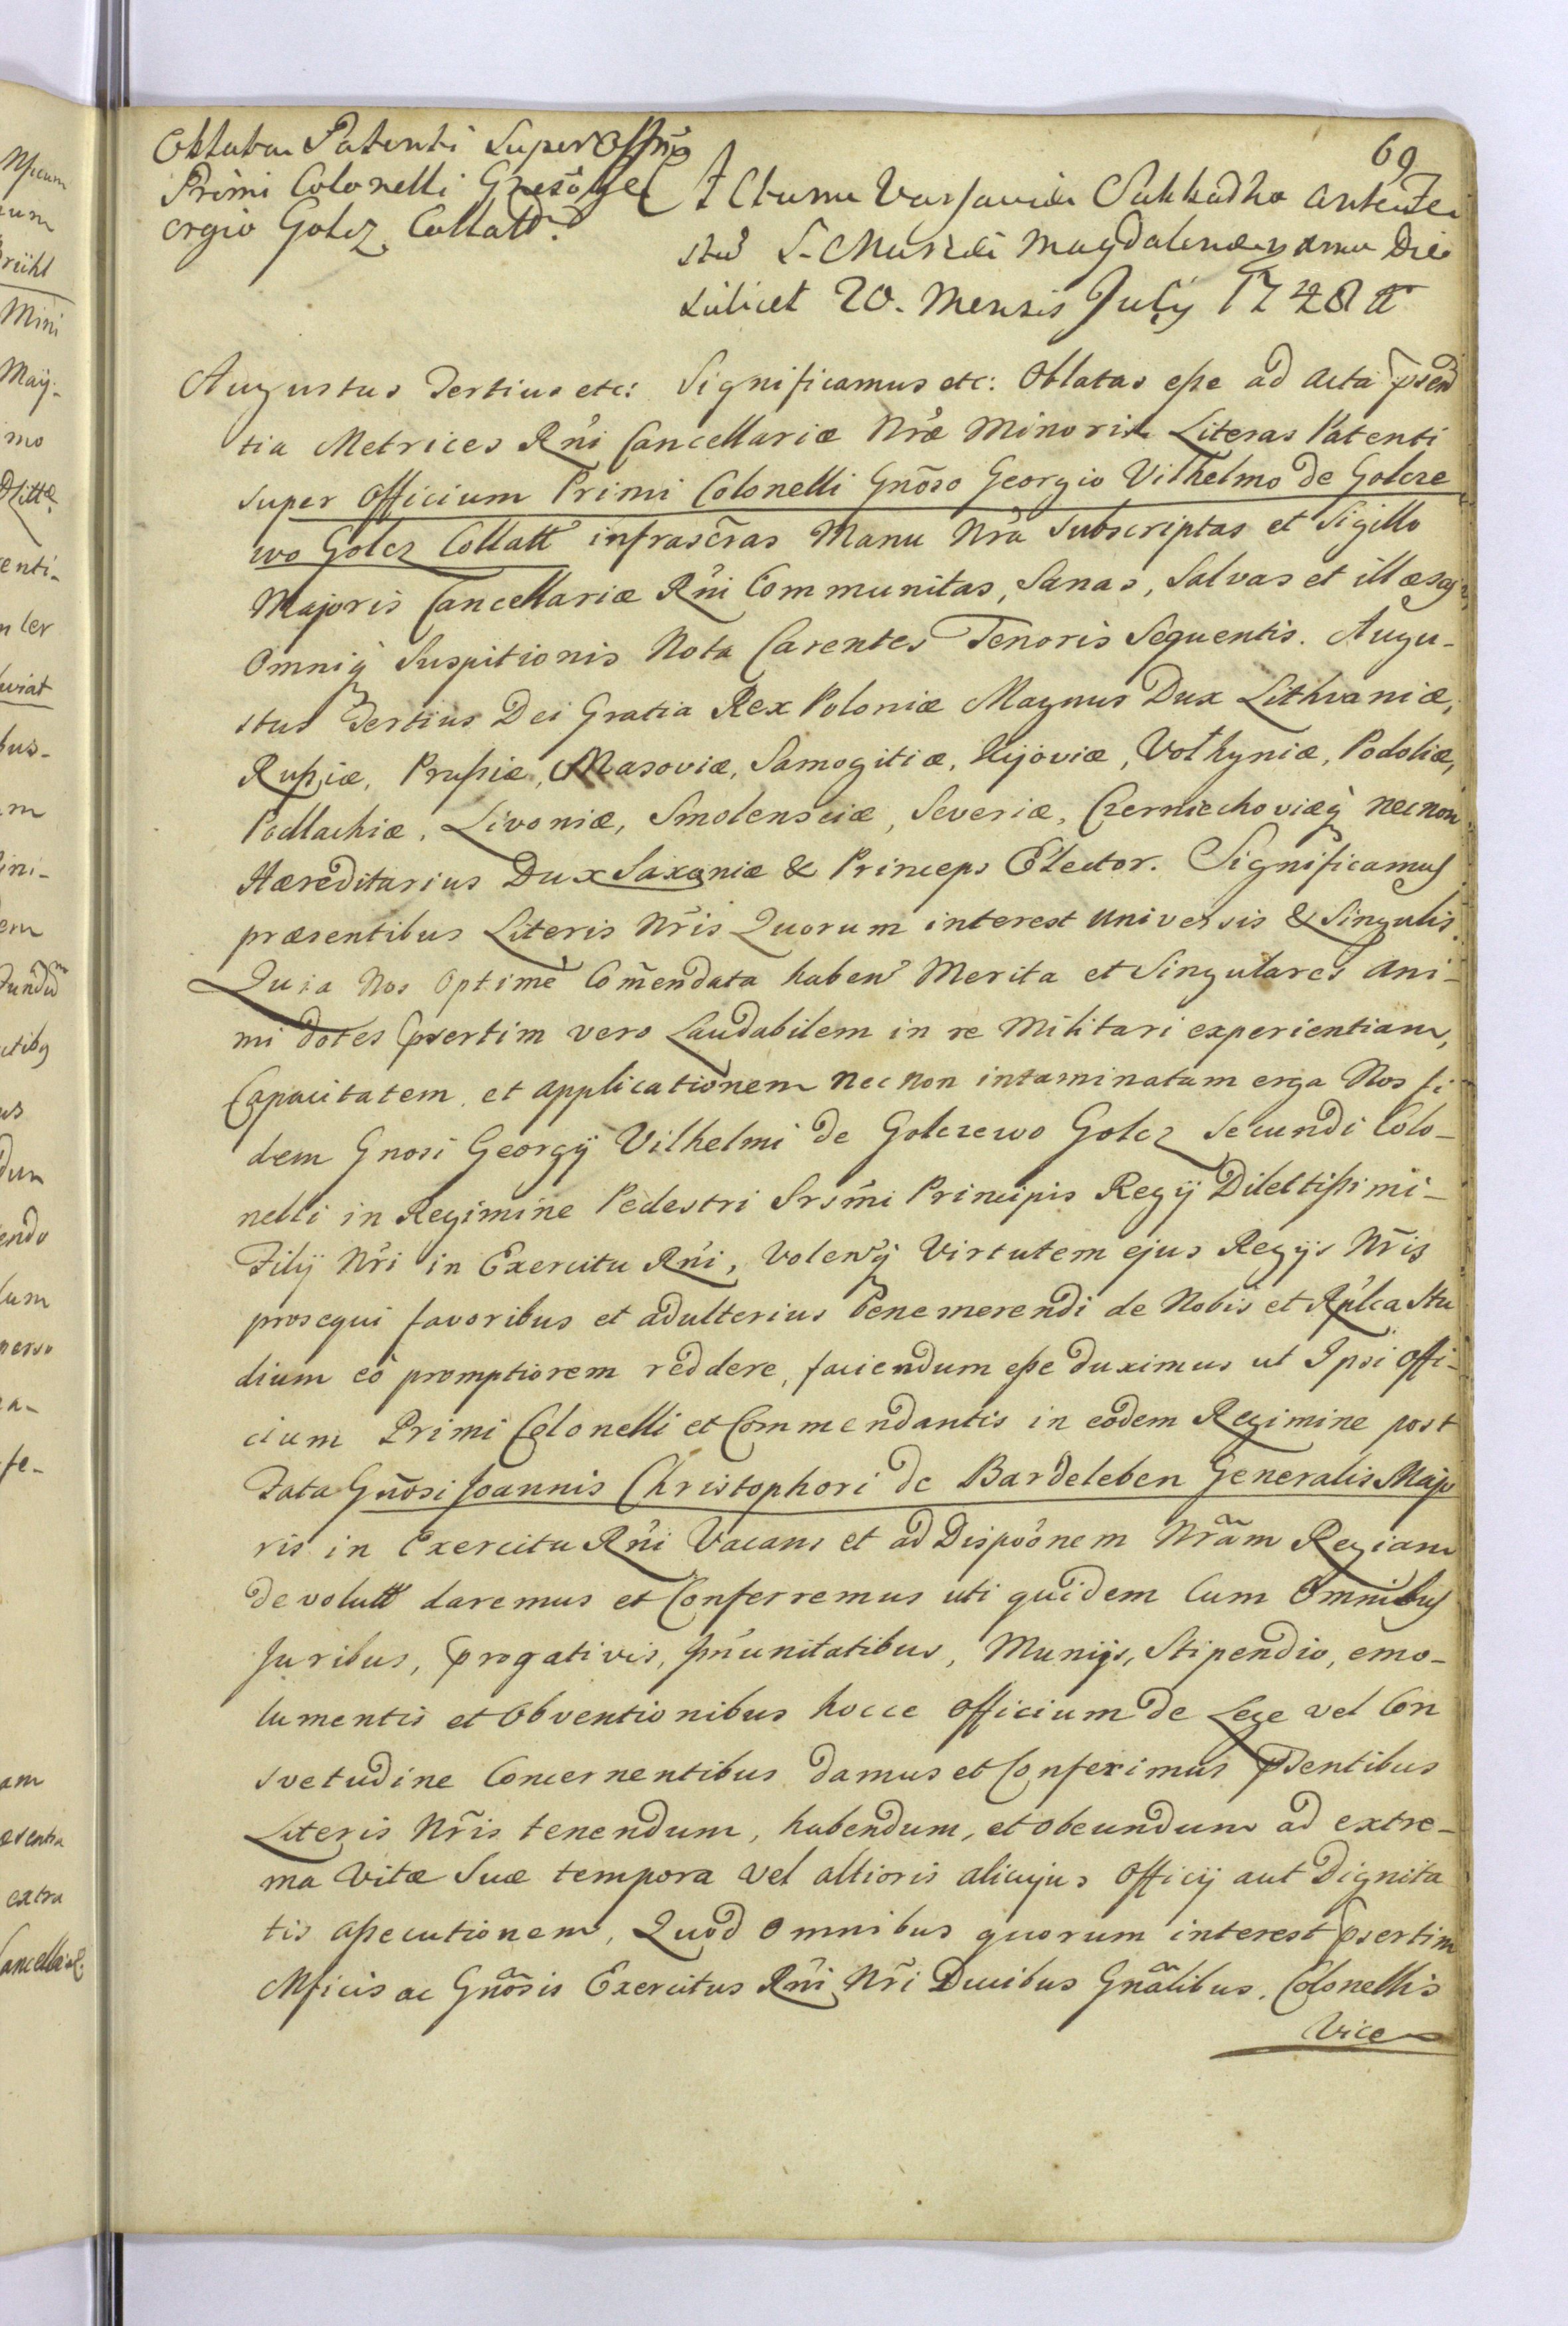 69
Oblata Patenti Super Offiū
Primi Colonelli Gneso Ge
orgio Golcz Collatt.
Actum Varsaviæ Sabbatho ante Fe
stū S. Mariæ Magdalenæ Die
Scilicet 20. Mensis July 1748 a
Augustus Tertius etc: Significamus etc: Oblatas esse ad acta præsen
tia Metrices Rñi Cancellariæ Nrǽ Minoris Literas Patenti
super Officium Primi Colonelli Gnõso Georgio Vilhelmo de Golcze
wo Golcz Collatt infrascr̃as Manu Nrã Subscriptas et Sigillo
Majoris Cancellariæ Rñi Communitas, Sanas, Salvas et illæsas
Omniq̨ Suspitionis Nota Carentes Tenoris Sequentis. Augu-
stus Tertius Dei Gratia Rex Poloniæ Magnus Dux Lithvaniæ,
Russiæ, Prussiæ, Masoviæ, Samogitiæ, Kijoviæ, Volhyniæ, Podoliæ,
Podlachiæ, Livoniæ, Smolensciæ, Severiæ, Czerniechoviæq̨ necnon
Hæreditarius Dux Saxoniæ & Princeps Elector. Significamus
præsentibus Literis Nr̃is Quorum interest universis & Singulis.
Quia Nos Optimè Com̃endata haben̄ Merita et Singulares Ani-
mi dotes p̃sertim vero Laudabilem in re Militari experientiam,
Capacitatem et applicationem nec non intaminatam erga Nos fi
dem Gnosi Georgij Vilhelmi de Golczewo Golcz Secundi Colo-
nelli in Regimine Pedestri Srsm̃i Principis Regij Dilectissimi-
Filij Nr̃i in Exercitu Rñi, Volen̄q̨ Virtutem ejus Regijs Nr̃is
prosequi favoribus et adulterius bene merendi de Nobis et Rp̃lca Stu
dium eò promptiorem reddere, faciendum esse duximus ut Ipsi offi-
cium Primi Colonelli et Commendantis in eodem Regimine post
Fata Gnõsi Joannis Christophori de Bardeleben Generalis Majo
ris in Exercitu Rñi Vacans et ad Dispõnem Nrãm Regiam
devolutt daremus et Conferremus uti quidem Cum Omnibus
Juribus, p̃rogativis, Im̃unitatibus, Munijs, Stipendio, emo-
lumentis et Obventionibus hocce Officium de Lege vel Con
svetudine Concernentibus damus et Conferimus p̃sentibus
Literis Nr̃is tenendum, habendum, et obeundum ad extre-
ma Vitæ Suæ tempora vel altioris alicujus Officij aut Dignita
tis assecutionem, Quod omnibus quorum interest p̃sertim
Mficis ac Gnõsis Exercitus Rñi Nr̃i Ducibus Gnãlibus, Colonellis
Vice